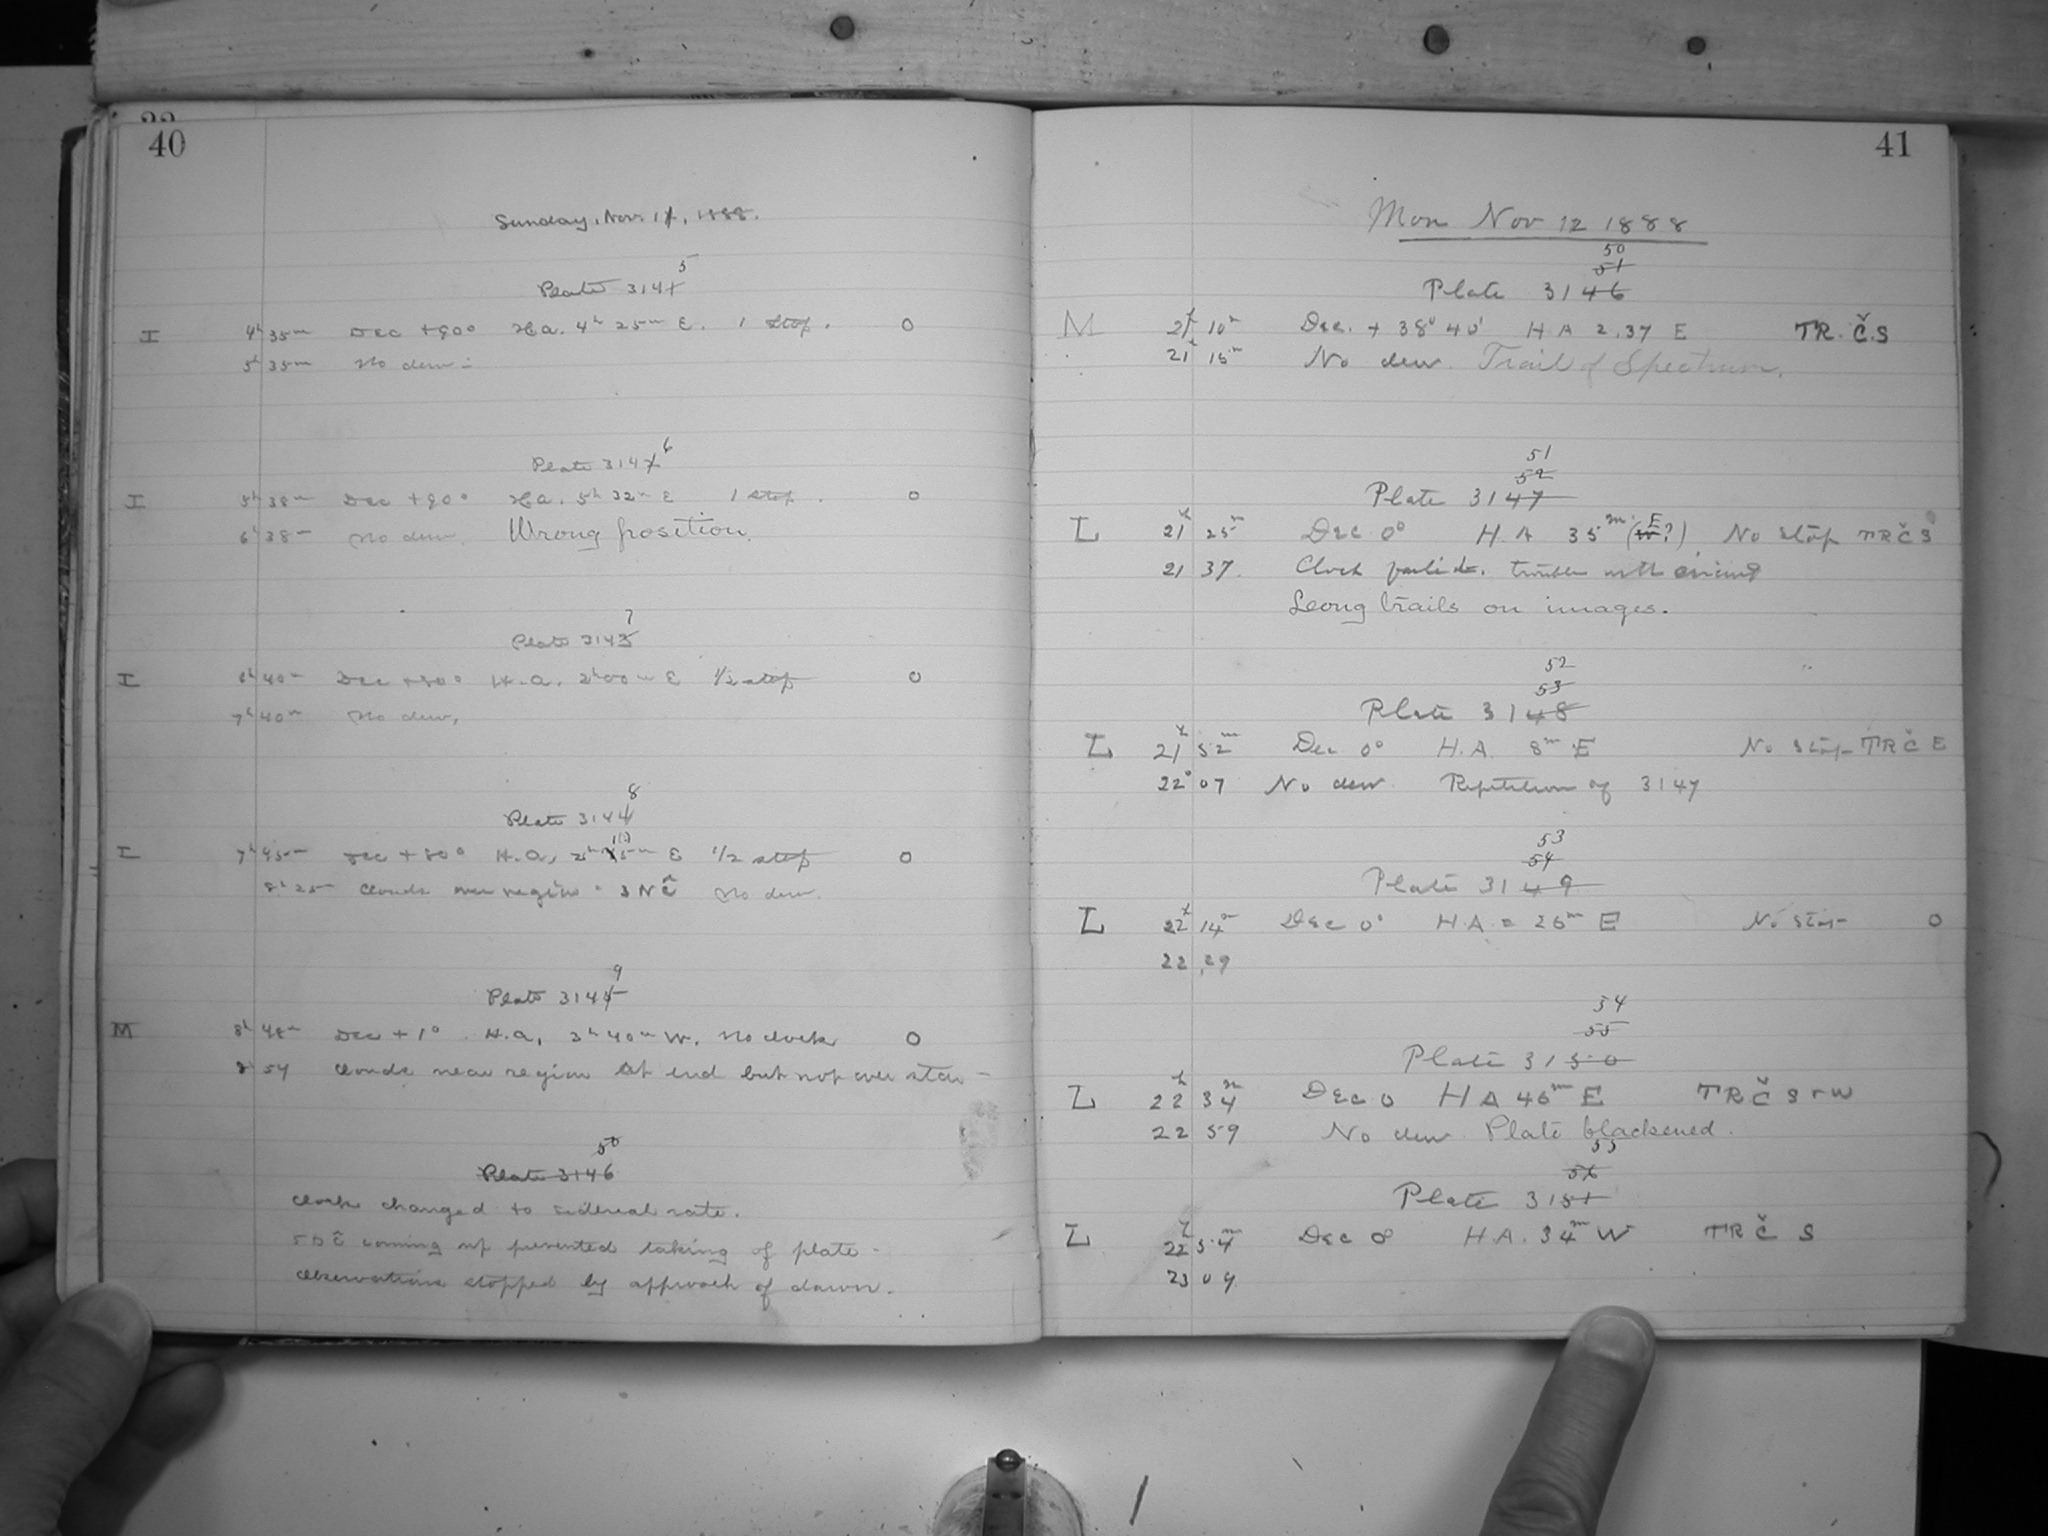 40
Sunday, Nov. 11, 1888.
5
Plate 3141
I 4h 35m Dec +90° H.a. 4h 25m E. 1 stop. 0
5h 35m No dew.
6
Plate 3142
I 5h 38m Dec +90° H.a. 5h 32m E 1 stop. 0
6h 38m No dew. Wrong position.
7
Plate 3143
I 6h 40m Dec +80° H.a. 2h 00m E 1/2 stop 0
7h 40m No dew.
8
Plate 3144
I 7h 45m Dec +80° H.a. E 1/2 stop 0
8h 25m Clouds over region 3 N Č No dew.
9
Plate 3145
M 8h 48m Dec +1° H.a. 3h 40m W. No clock 0
8 54 Clouds near region at end but not over star
50
Plate 3146
Clock changed to sidereal rate.
5 D Č coming up prevented taking of plate.
Observations stopped by approach of dawn.
41
Mon Nov 12 1888
50
51
Plate 3146
M 21h 10m Dec. + 38° 40' H A 2.37 E TR.Č.S
21h 15m No dew. Trail of Spectrum.
51
52
Plate 3147
L 21h 25m Dec. 0° H.A 35m (W E?) No stop TRČS
21 37. Clock failed. trouble with circuit
Long trails on images.
52
53
Plate 3148
L 21h 52m Dec 0° H.A. 8m E No stop TRČE
22 07 No dew Repetition of 3147
53
54
Plate 3149
L 22h 14m Dec 0° H.A. = 26m E No stop 0
22 29
54
55
Plate 3150
L 22h 34m Dec 0 H A 46m E TRČS r W
22 59 No dew Plate blackened.
55
56
Plate 3151
L 22h 54m Dec 0° H.A. 34m W TRČ S
23 09